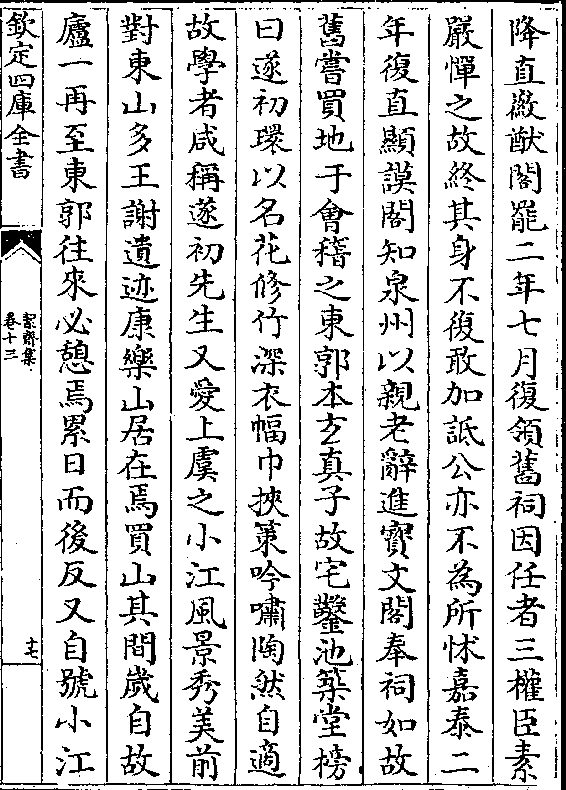 降直徽猷閣罷二年七月復領舊祠因任者三權臣素
嚴憚之故終其身不復敢加詆公亦不為所怵嘉泰二
年復直顯謨閣知泉州以親老辭進寳文閣奉祠如故
舊嘗買地于會稽之東郭本玄真子故宅鑿池築堂榜
曰遂初環以名花修竹深衣幅巾挾䇿吟嘯陶然自適
故學者咸稱遂初先生又愛上虞之小江風景秀美前
對東山多王謝遺迹康樂山居在焉買山其間歲自故
廬一再至東郭往來必憩焉累日而後反又自號小江
欽定四庫全書
絜齋集
卷十三
十七